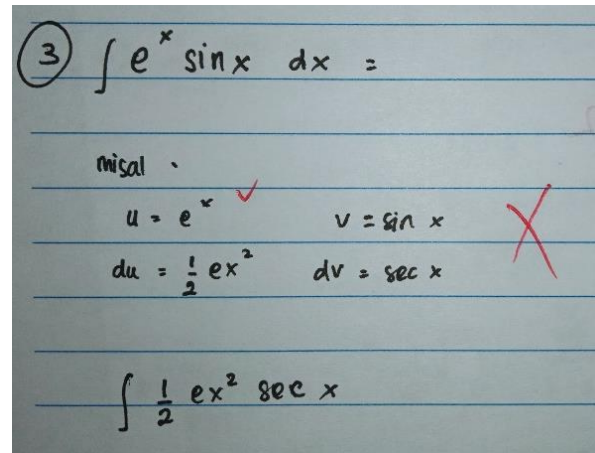 3 ∫ e^x sin x dx =
misal .
u = e^x v = sin x
du = 1/2 ex^2 dv = sec x
∫ 1/2 ex^2 sec x